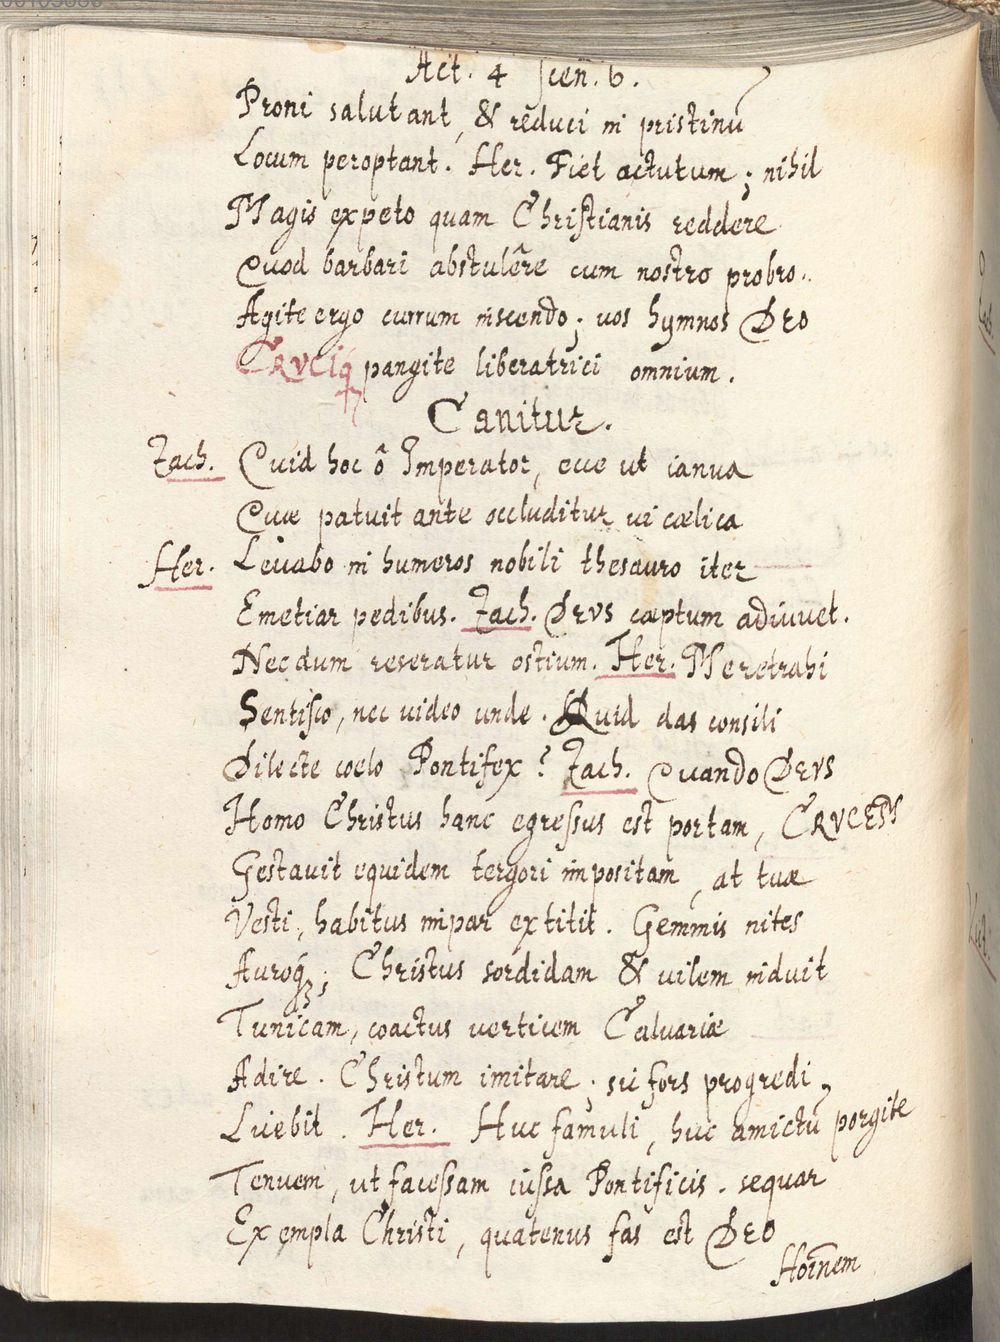 Act. 4 scen. 6.
Proni salutant, & rĕduci in pristinū
Locum peroptant. Her. Fiet actutum; nihil
Magis expeto quam Christianis reddere
Quod barbari abstulêre cum nostro probro.
Agite ergo currum inscendo; vos hymnos DEO
CRVCIq́ pangite liberatrici omnium.
Canitur.
Zach. Quid hoc ô Imperator, ecce ut ianua
Quæ patuit ante occluditur vi cælica
Her. Levabo in humeros nobili thesauro iter
Emetiar pedibus. Zach. DEVS cæptum adiuvet.
Necdum reseratur ostium. Her. Me retrahi
Sentisco, nec video unde. Quid das consili
Dilecte coelo Pontifex? Zach. Quando DEVS
Homo Christus hanc egressus est portam, CRVCEM
Gestavit equidem tergori impositam, at tuæ
Vesti, habitus impar extitit. Gemmis nites
Auroq́; Christus sordidam & vilem induit
Tunicam, coactus verticem Calvariæ
Adire. Christum imitare; sic fors progredi
Licebit. Her. Huc famuli, huc amictū porgite
Tenuem, ut facessam iussa Pontificis. sequar
Exempla Christi, quatenus fas est DEO
Hoīnem